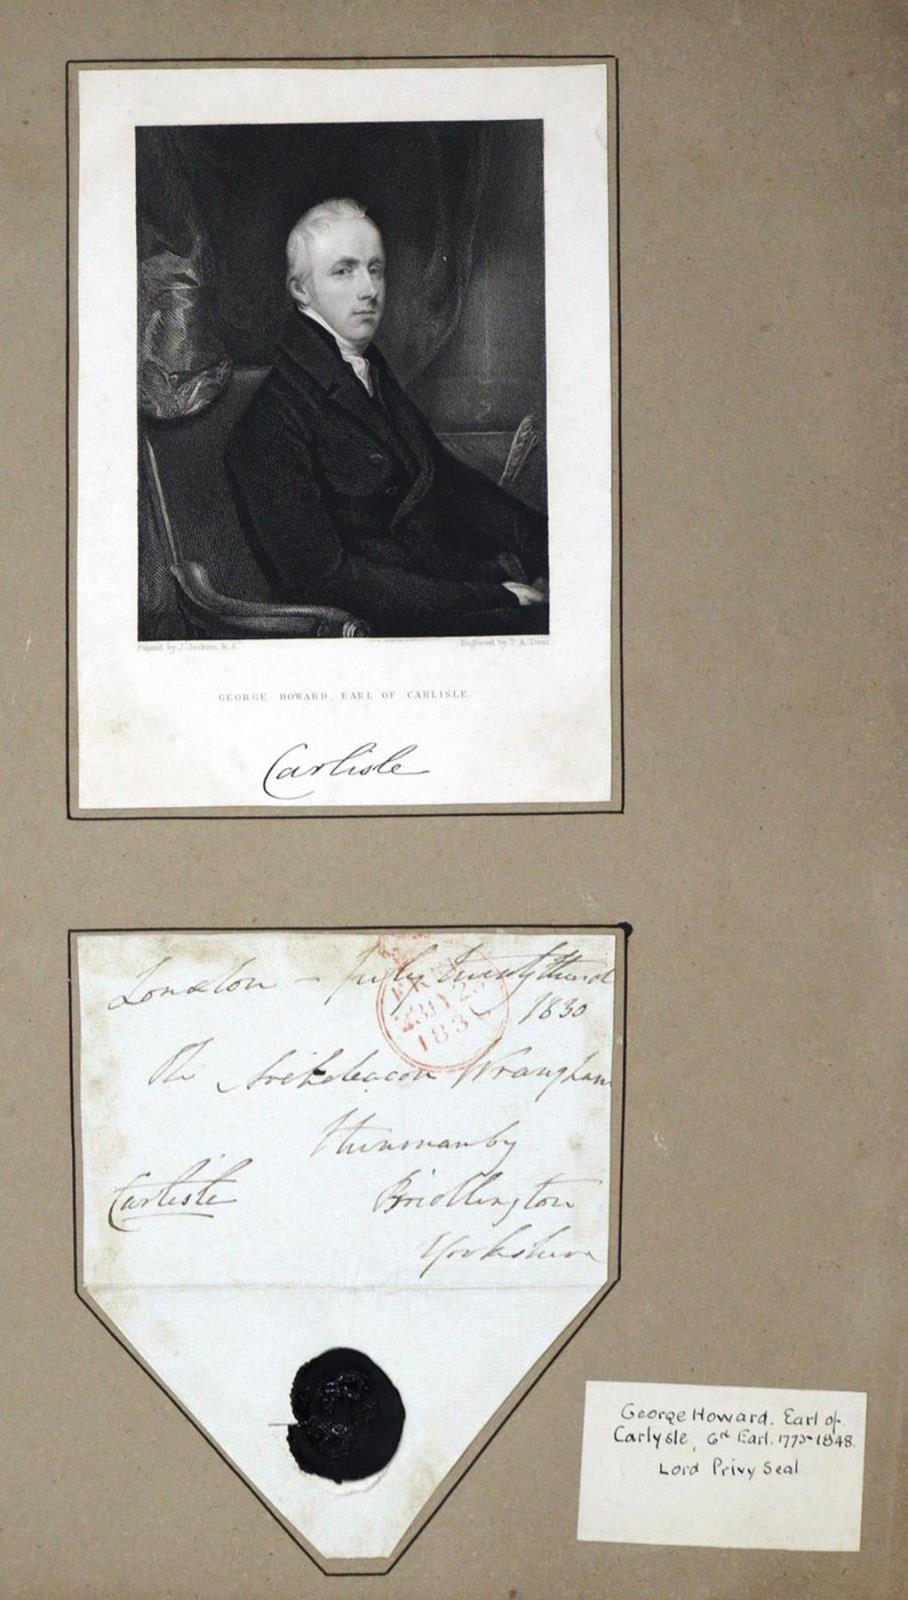 Painted by J. Jackson, R.A.
Engraved by T. A. Dean.
GEORGE HOWARD, EARL OF CARLISLE.
Carlisle
London – July twenty third
1830
The Archdeacon Wrangham
Hunmanby
Carlisle
Bridlington
Yorkshire
23JY23
183
George Howard. Earl of
Carlysle, 6th Earl. 1773-1848.
Lord Privy Seal